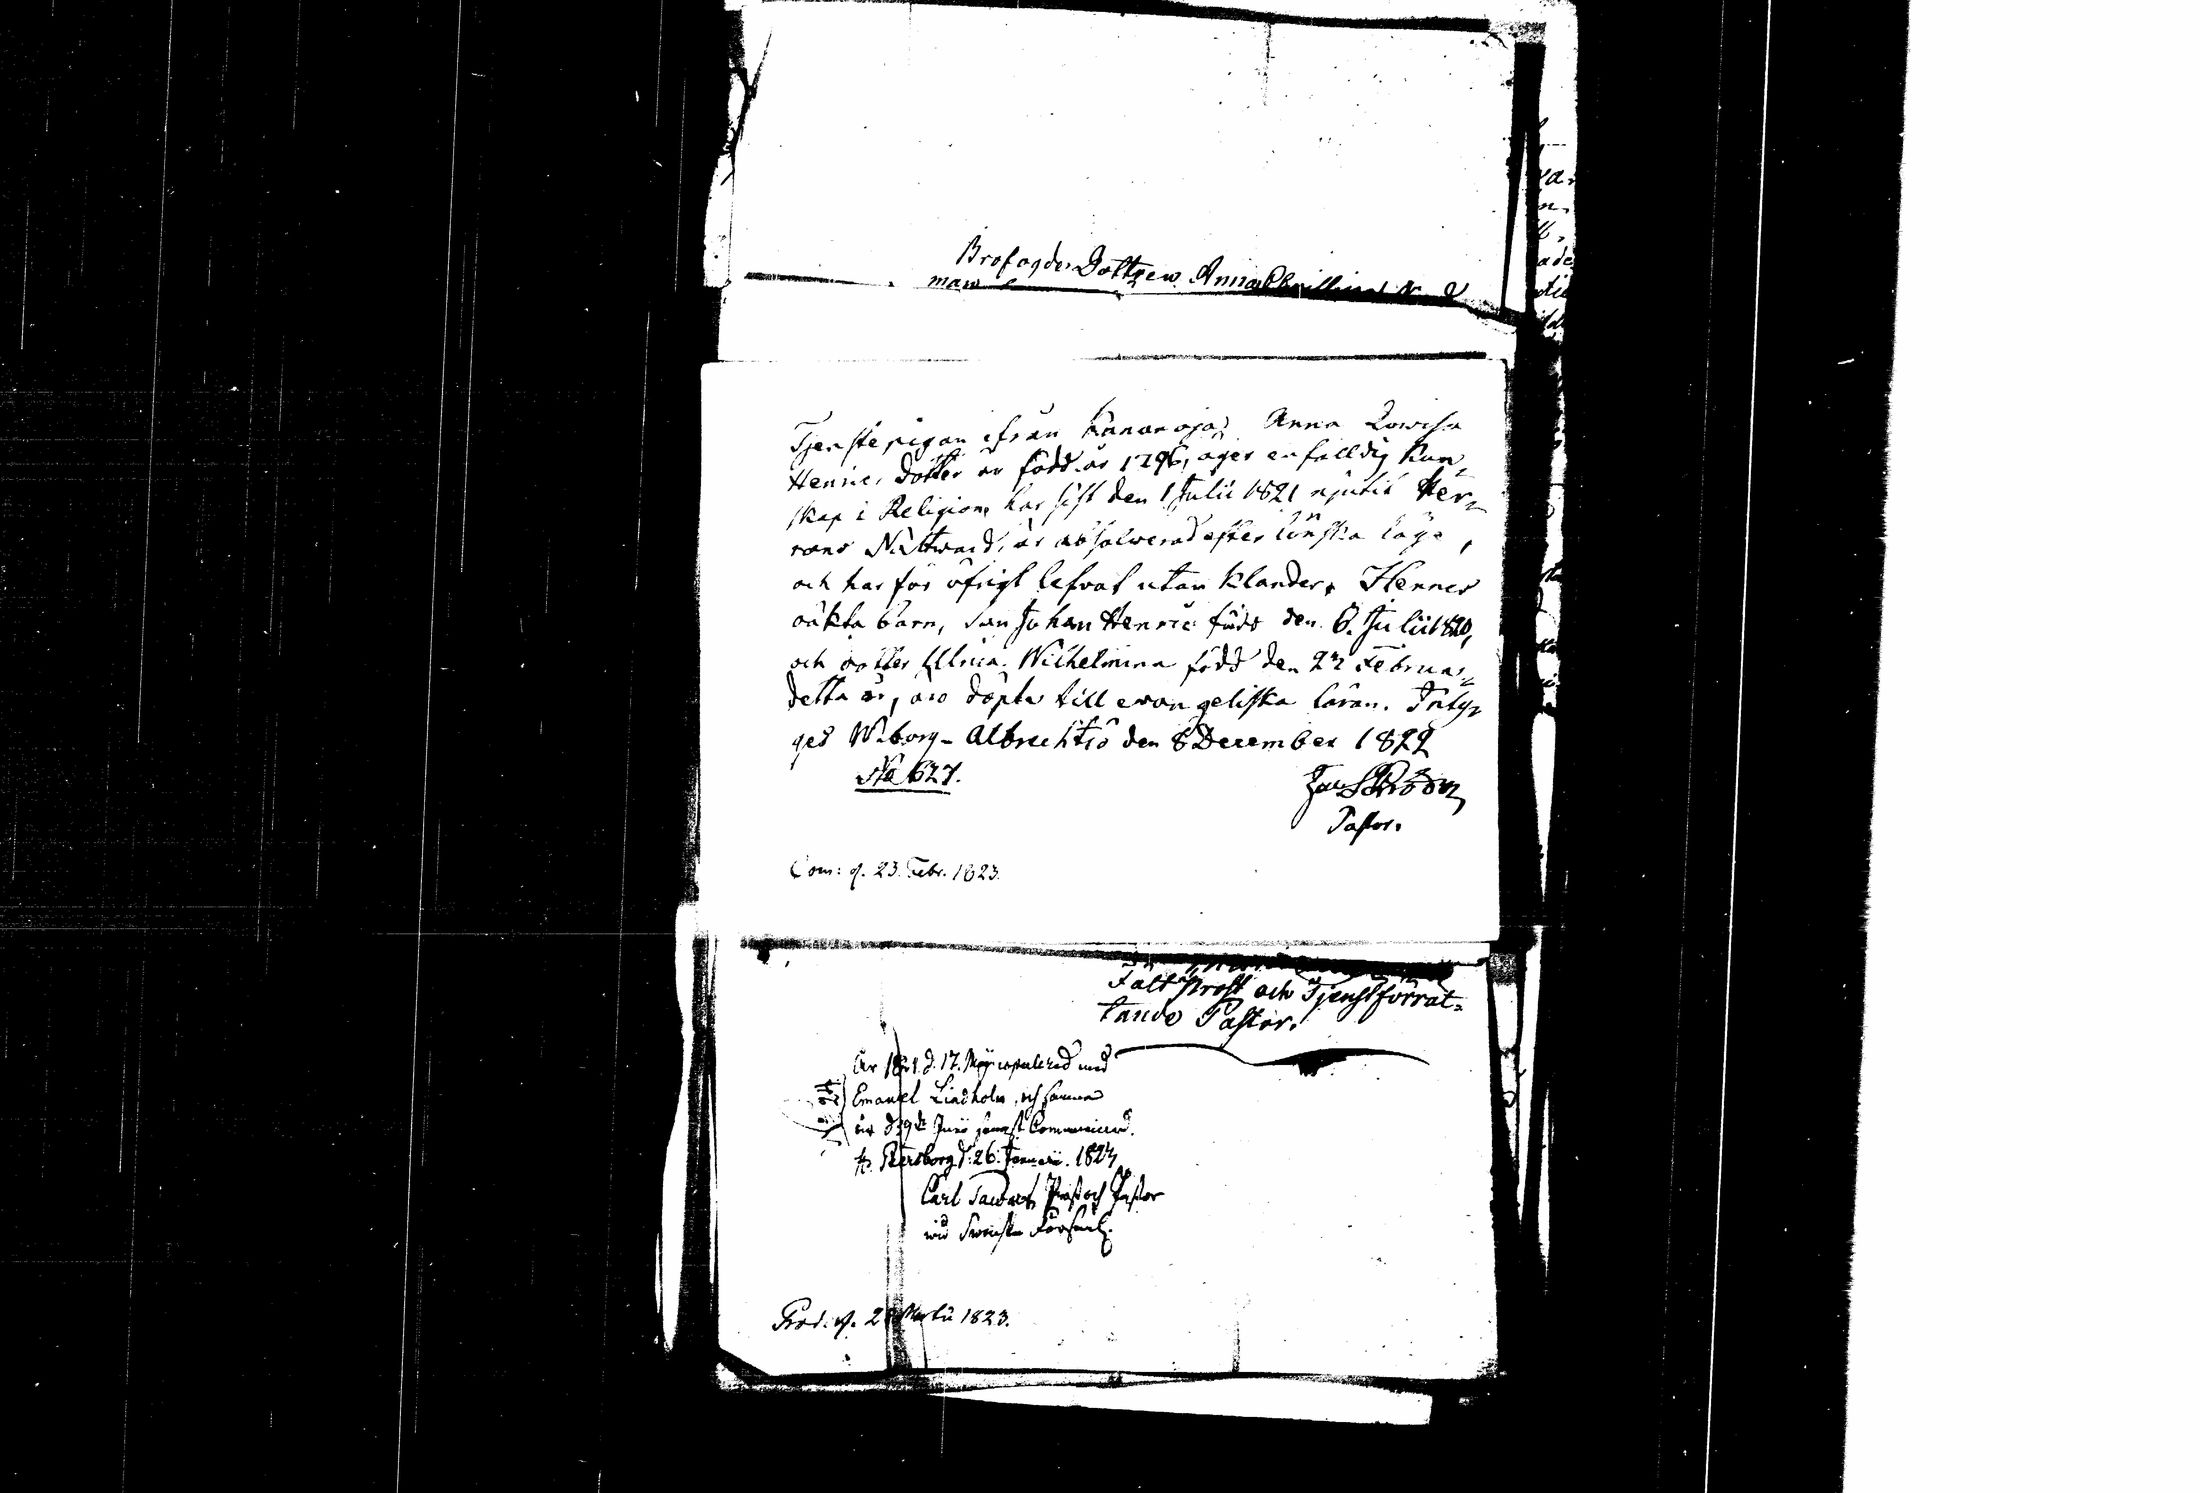 Brofogdes Dottren Anna
man
Tjenstepigan ifrån Kananoja, Anna Lowisa
Henrics dotter är född år 1796, äger enfalldig kun-
skap i Religion, har sist den 1 Julii 1821 njutit Her-
rans Nattward, är absolwerad efter
och har för öfrigt lefvat utan klander. Hennes
oäkta barn, son Johan Henric född den 6. Julii 1820,
och dotter Ulrica Wilhelmina född den 22 Februar.
detta år, äro döpte till evangeliska läran. Inty-
gas Wiborg - den 8 December 1822
No 627.
Pastor.
Com: d. 23. Febr. 1823.
Fält Prost och Tjenstförrat-
tande Pastor.
År 1821. d. 17. Maji copulerad med
Emanuel Lindholm, och samma
år d. 19de Junii sednast Communicerad.
St. Petersborg d: 26. Januarii. 1823
Carl Prost och Pastor
wid Swenska Församl.
Prod. d. Martii 1823.